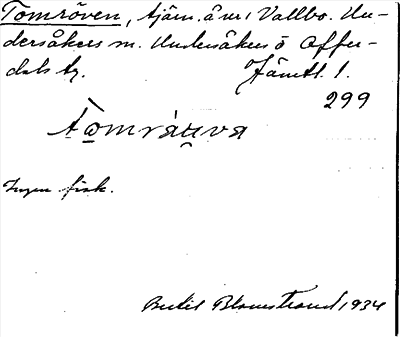 Tomröven, tjärn. å nr 1 Vallbo. Un-
dersåkers sn. Undersåkers o Offer-
dals tg. Jämtl. l.
299
tomràuva
Ingen fisk.
Bertil Blomstrand, 1934